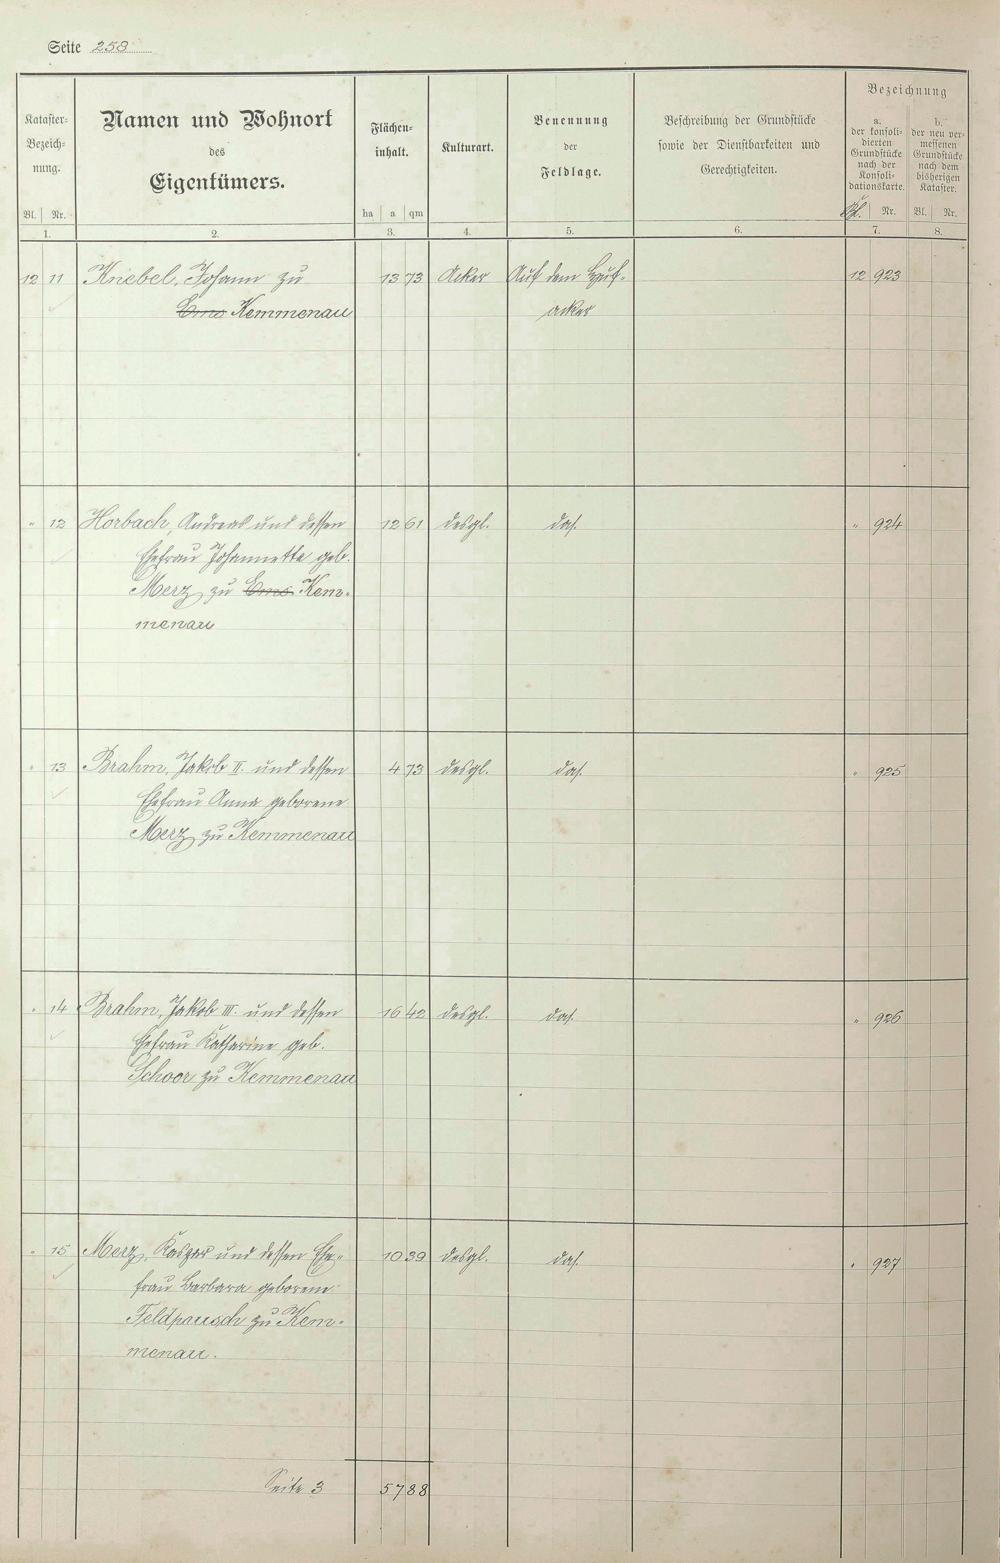 Seite 258
Kataster-
Bezeich-
nung.
Bl. Nr.
1.
Namen und Wohnort
des
Eigentümers.
2.
Flächen-
inhalt.
ha a qm
3.
Kulturart.
4.
Benennung
der
Feldlage.
5.
Beschreibung der Grundstücke
sowie der Dienstbarkeiten und
Gerechtigkeiten.
6.
Bezeichnung
a.
der konsoli-
dierten
Grundstücke
nach der
Konsoli-
dationskarte.
Bl. Nr.
7.
b.
der neu ver-
messenen
Grundstücke
nach dem
bisherigen
Kataster.
Bl. Nr.
8.
12 11 Knebel, Johann zu 13 73 Acker Auf dem 12 923
Ems Kemmenau acker
" 12 Horbach, Andreas und dessen 12 61 desgl. das. " 924
Ehefrau Johannette geb.
Merz zu Ems Kem-
menau
" 13 Brahm, Jakob II. und dessen 4 73 desgl. das. " 925
Ehefrau Anna geborene
Merz zu Kemmenau
" 14 Brahm, Jakob III. und dessen 16 42 desgl. das. " 926
Ehefrau Katharine geb.
Schoor zu Kemmenau
" 15 Merz, Kaspar und dessen Ehe- 10 39 desgl. das. " 927
frau Barbara geborene
Feldpausch zu Kem-
menau.
Seite 3 57 88